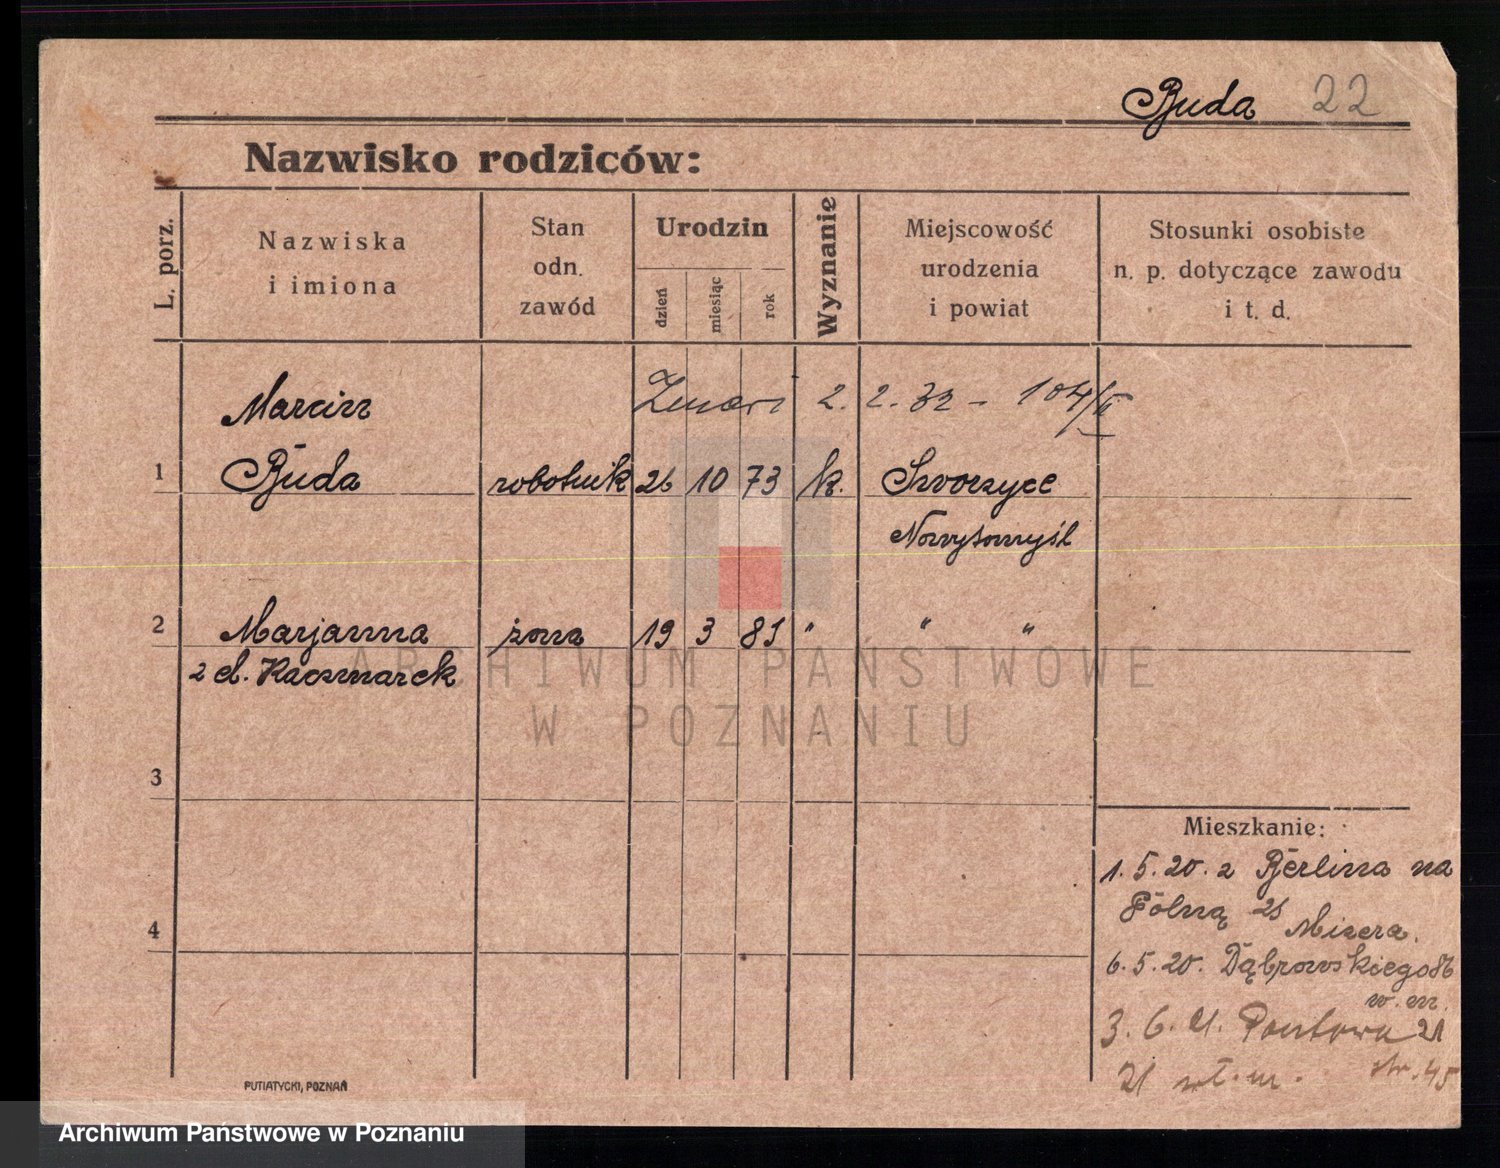 Buda 22
Nazwisko rodziców:
L. porz.
Nazwiska
i imiona
Stan
odn.
zawód
Urodzin
dzień
miesiąc
rok
Wyznanie
Miejscowość
urodzenia
i powiat
Stosunki osobiste
n. p. dotyczące zawodu
i t. d.
Marcin
2. 2. 32 - 104/II
1 Buda robotnik 26 10 73 k.
Nowytomyśl
2 Marjanna żona 19 3 81 " " "
z d. Kaczmarek
ARCHIWUM PAŃSTWOWE
W POZNANIU
3
4
Mieszkanie:
1. 5. 20. z Berlina na
Polną 21
6. 5. 20. Dąbrowskiego
3. 6. 21. 21
21 wł. m. str. 45
PUTIATYCKI, POZNAŃ
Archiwum Państwowe w Poznaniu